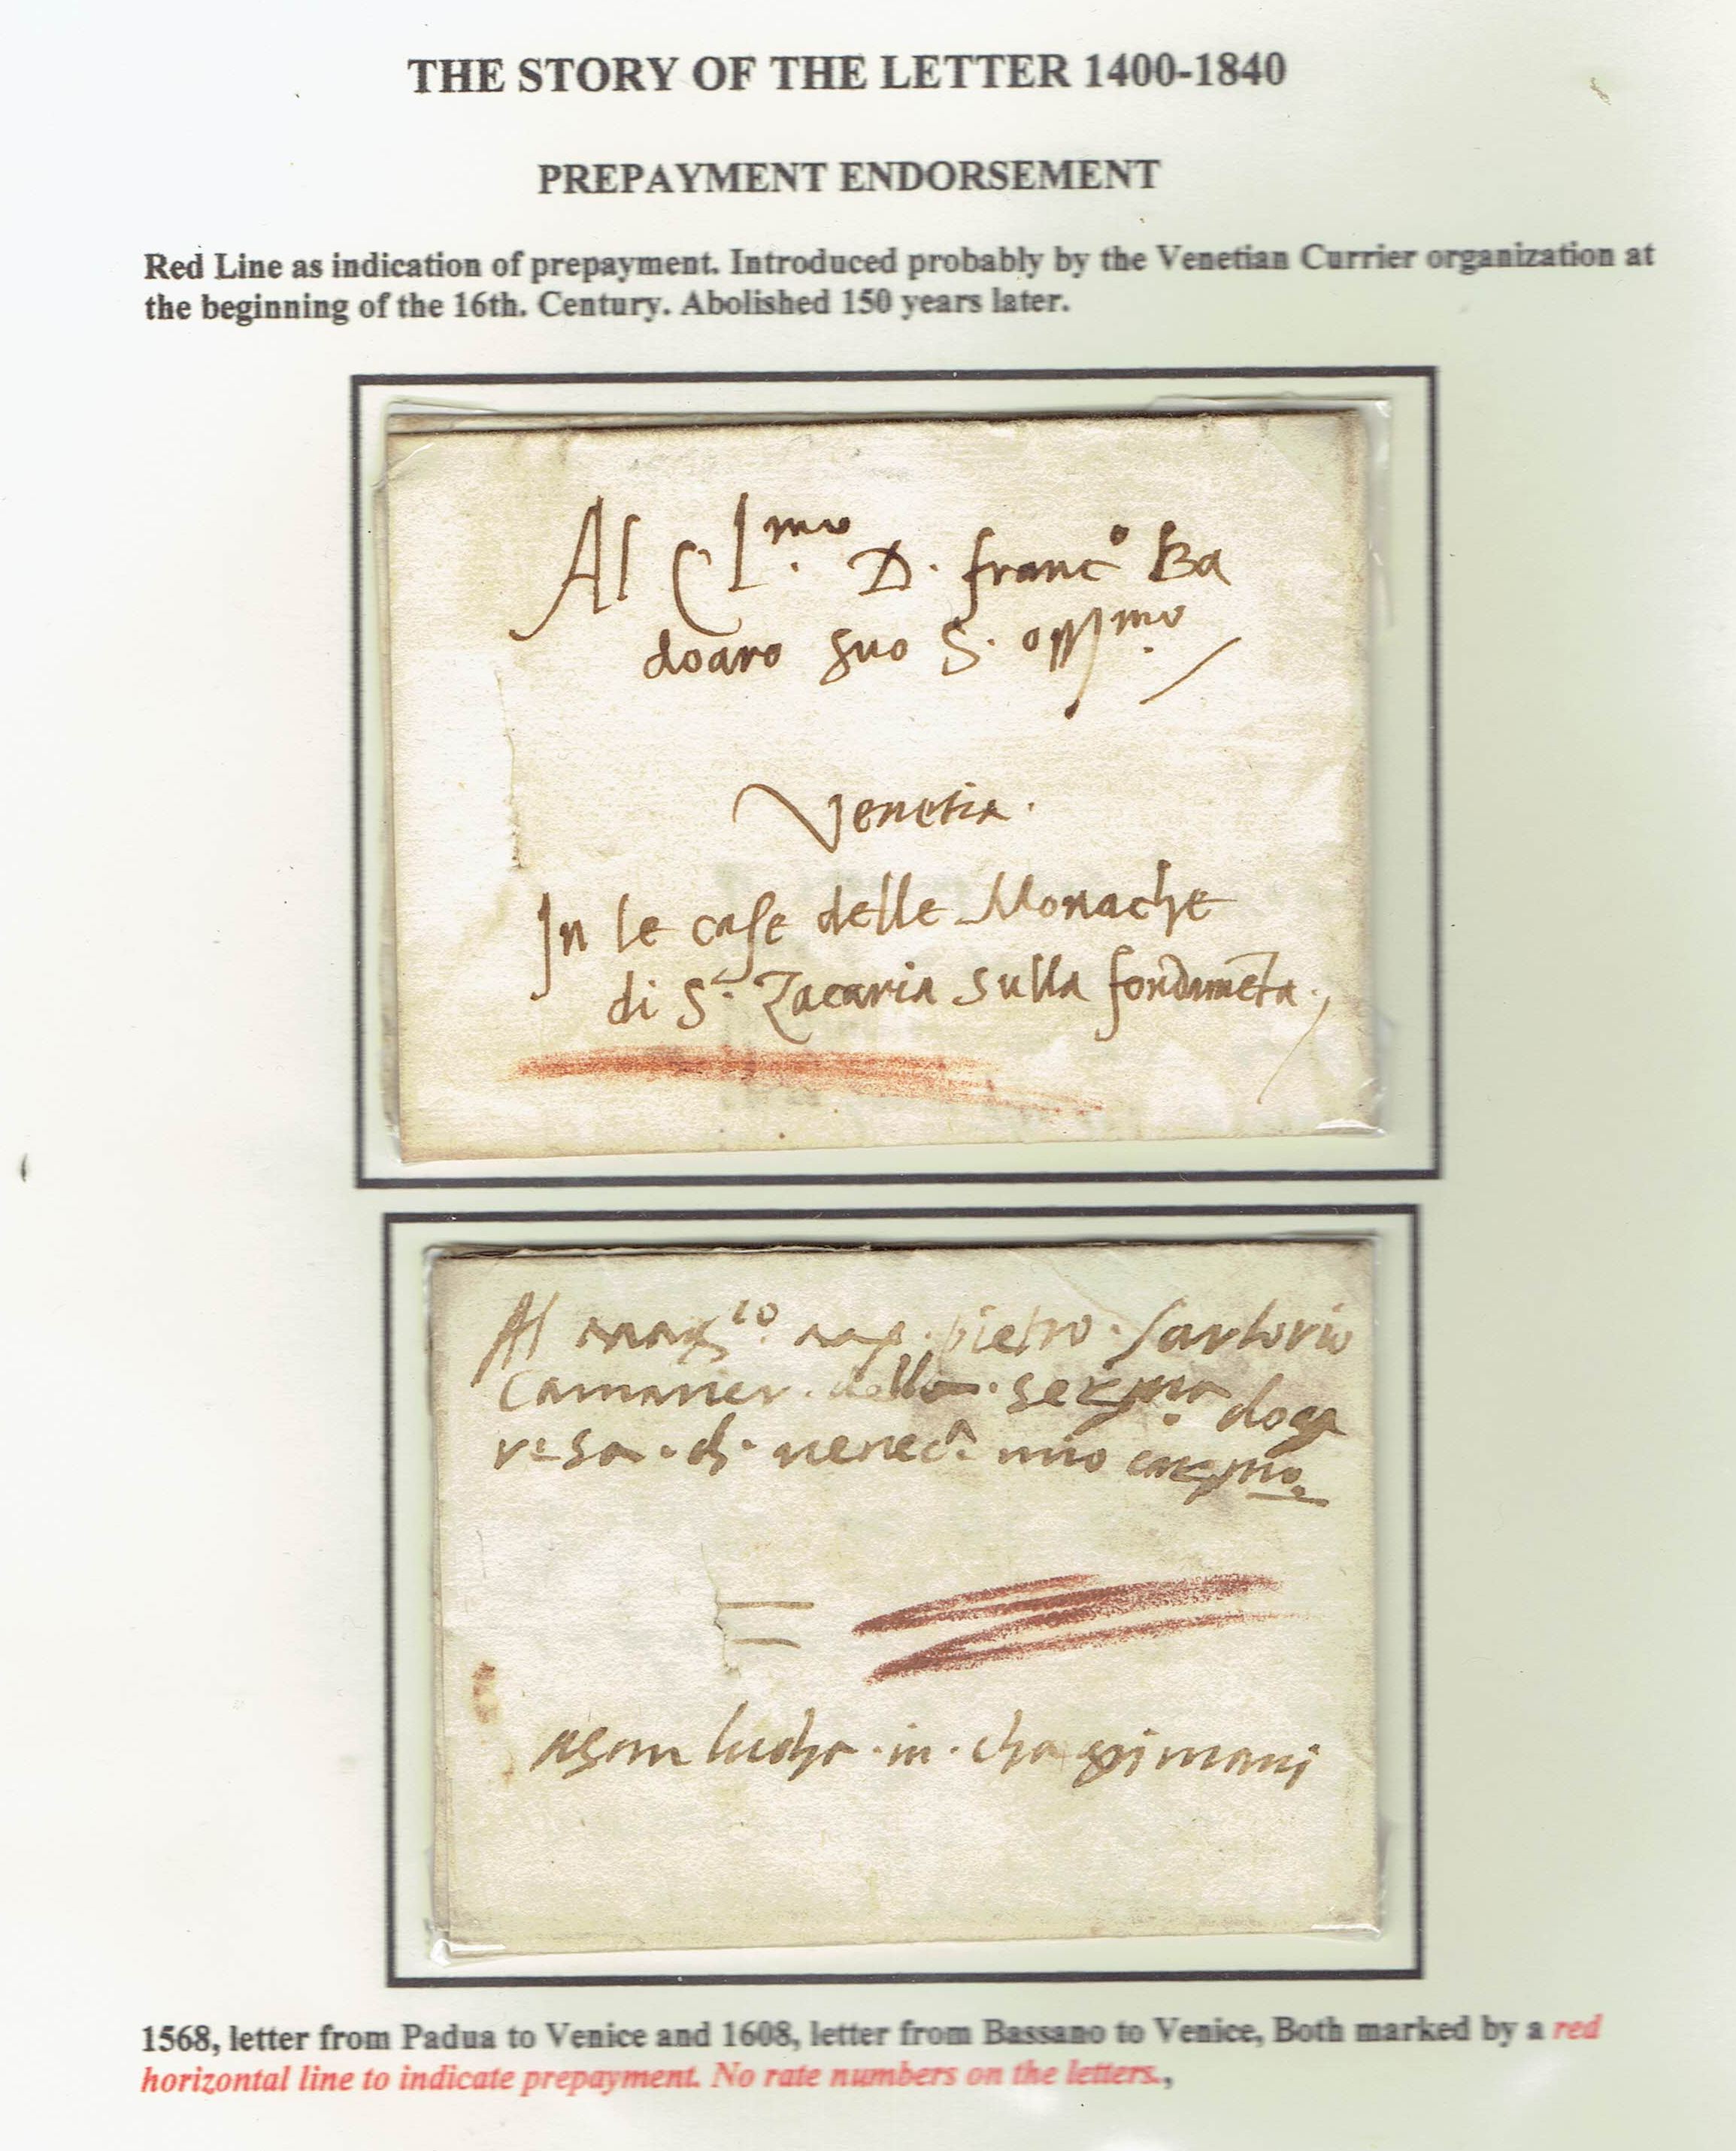 THE STORY OF THE LETTER 1400-1840
PREPAYMENT ENDORSEMENT
Red Line as indication of prepayment. Introduced probably by the Venetian Currier organization at
the beginning of the 16th. Century. Abolished 150 years later.
Al Cl.mo D. franc.o Ba
doaro suo S. oss.mo
Venetia.
In le case delle Monache
di S. Zacaria sulla fondameta.
Al mag.co pietro. Sartorio
Camarier. della. ser.ma doga
resa. di. mio
in. cha grimani
1568, letter from Padua to Venice and 1608, letter from Bassano to Venice, Both marked by a red
horizontal line to indicate prepayment. No rate numbers on the letters.,